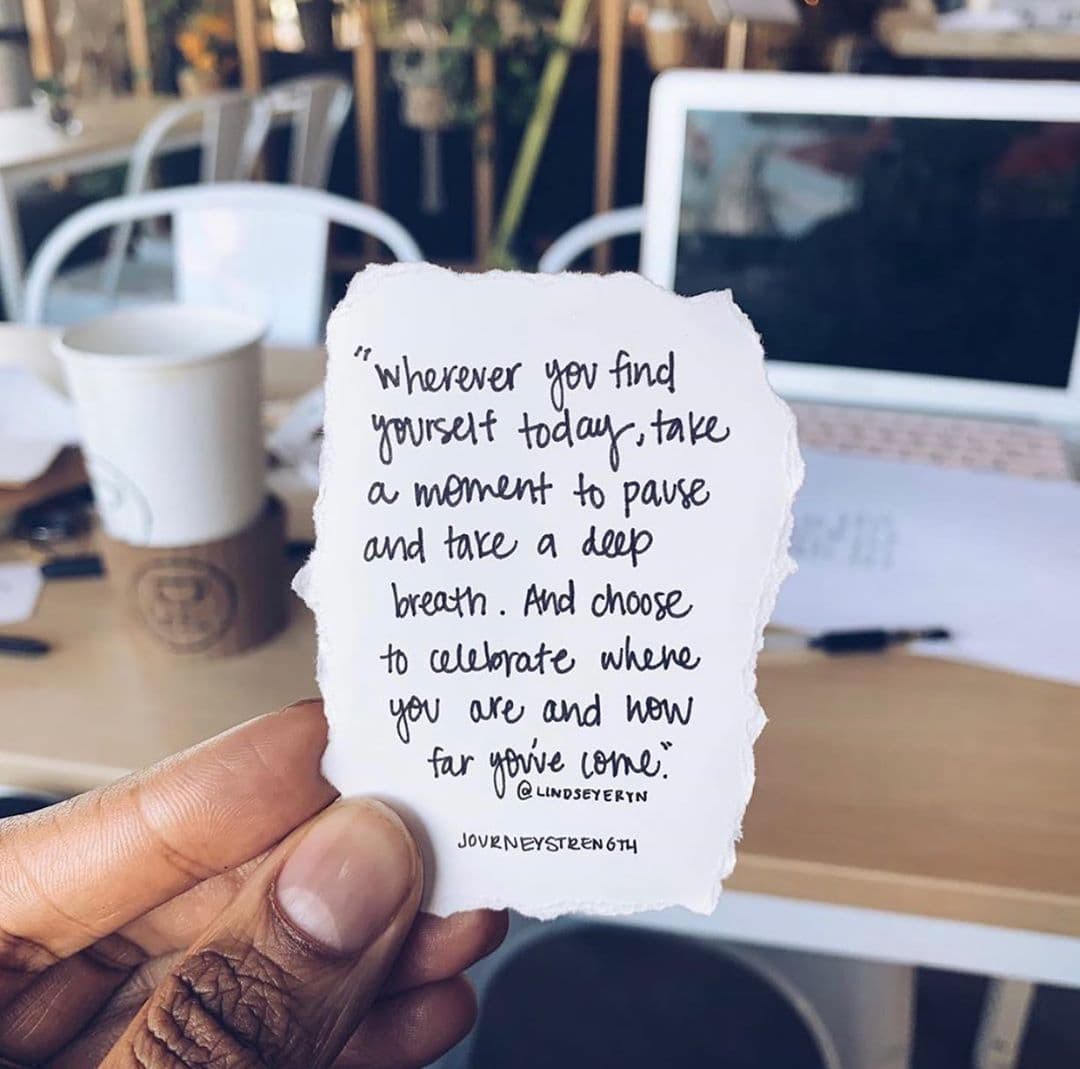 "wherever you find
yourself today, take
a moment to pause
and take a deep
breath. And choose
to celebrate where
you are and how
far you've come."
@LINDSEYERYN
JOURNEYSTRENGTH